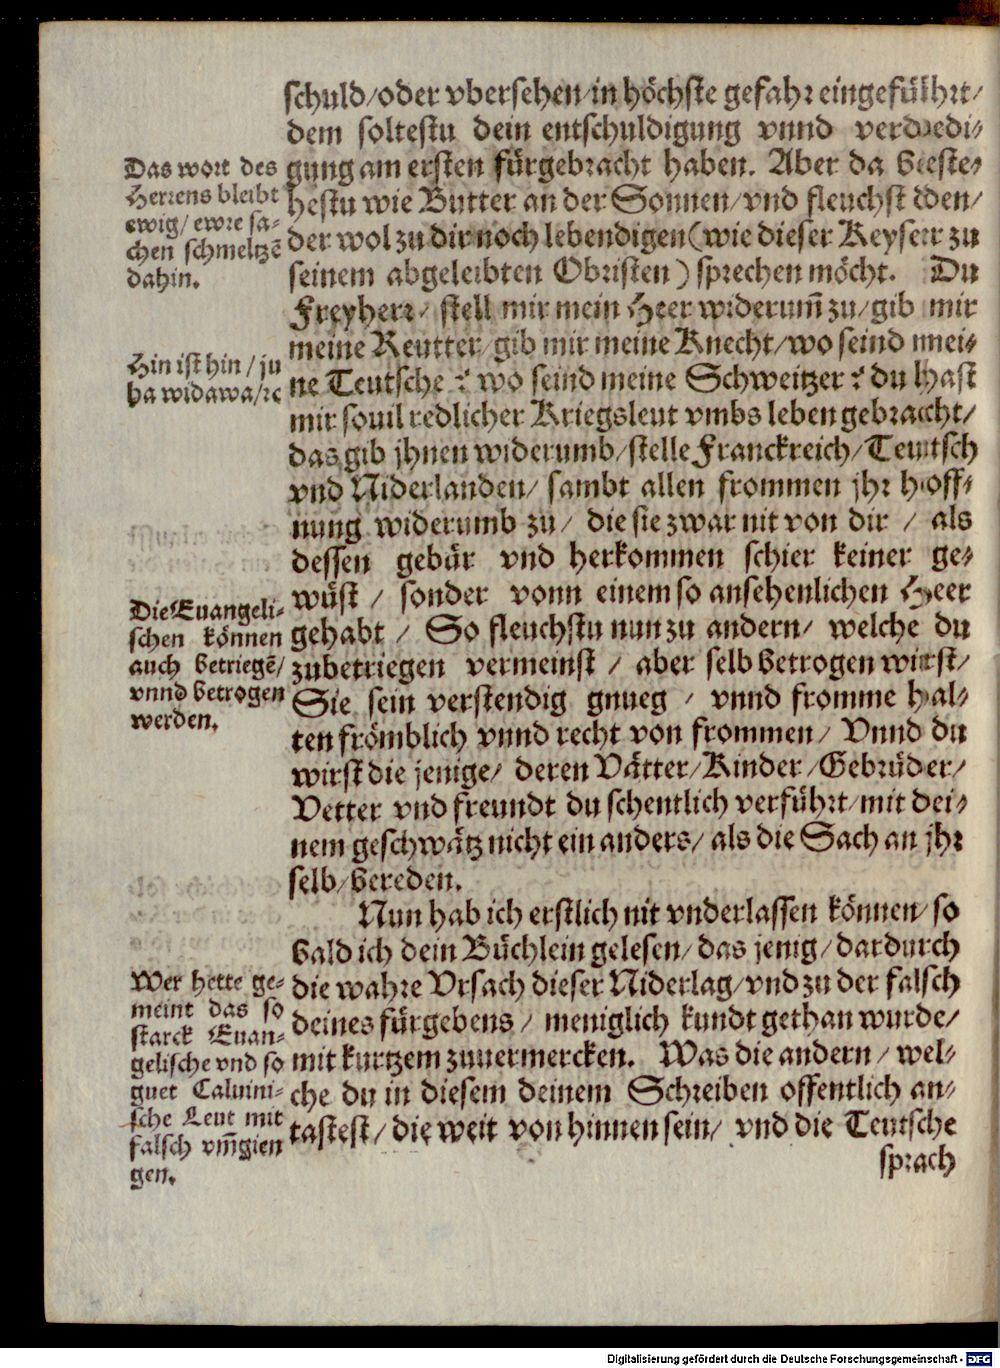 schuld/oder vbersehen/in höchste gefahr eingeführt/
dem soltestu dein entschuldigung vnnd verdedi-
gung am ersten fürgebracht haben. Aber da beste-
hestu wie Butter an der Sonnen/vnd fleuchst den/
der wol zu dir noch lebendigen (wie dieser Keyser zu
seinem abgeleibten Obristen) sprechen möcht. Du
Freyherr/ stell mir mein Heer widerum̃ zu/gib mir
meine Reutter/gib mir meine Knecht/wo seind mei-
ne Teutsche? wo seind meine Schweitzer? du hast
mir souil redlicher Kriegsleut vmbs leben gebracht/
das gib jhnen widerumb/stelle Franckreich/Teutsch
vnd Niderlanden/ sambt allen frommen jhr hoff-
nung widerumb zu/ die sie zwar nit von dir / als
dessen gebür vnd herkommen schier keiner ge-
wüst / sonder vonn einem so ansehenlichen Heer
gehabt / So fleuchstu nun zu andern/ welche du
zubetriegen vermeinst / aber selb betrogen wirst/
Sie sein verstendig gnueg / vnnd fromme hal-
ten frömblich vnnd recht von frommen/ Vnnd du
wirst die jenige/ deren Vätter/Kinder/Gebrüder/
Vetter vnd freundt du schentlich verführt/mit dei-
nem geschwätz nicht ein anders/ als die Sach an jhr
selb/bereden.
Nun hab ich erstlich nit vnderlassen können/so
bald ich dein Büchlein gelesen/das jenig/dardurch
die wahre Vrsach dieser Niderlag/vnd zu der falsch
deines fürgebens / meniglich kundt gethan wurde/
mit kurtzem zuuermercken. Was die andern/ wel-
che du in diesem deinem Schreiben offentlich an-
tastest/ die weit von hinnen sein/ vnd die Teutsche
sprach
Das wort des
Herrens bleibt
ewig/ ewre sa-
chen schmeltzẽ
dahin.
Hin ist hin/ju
ha widawa/ꝛc
Die Euangeli-
schen können
auch betriegẽ/
vnnd betrogen
werden.
Wer hette ge-
meint das so
starck Euan-
gelische vnd so
guet Caluini-
sche Leut mit
falsch vm̃gien
gen.
Digitalisierung gefördert durch die Deutsche Forschungsgemeinschaft - DFG